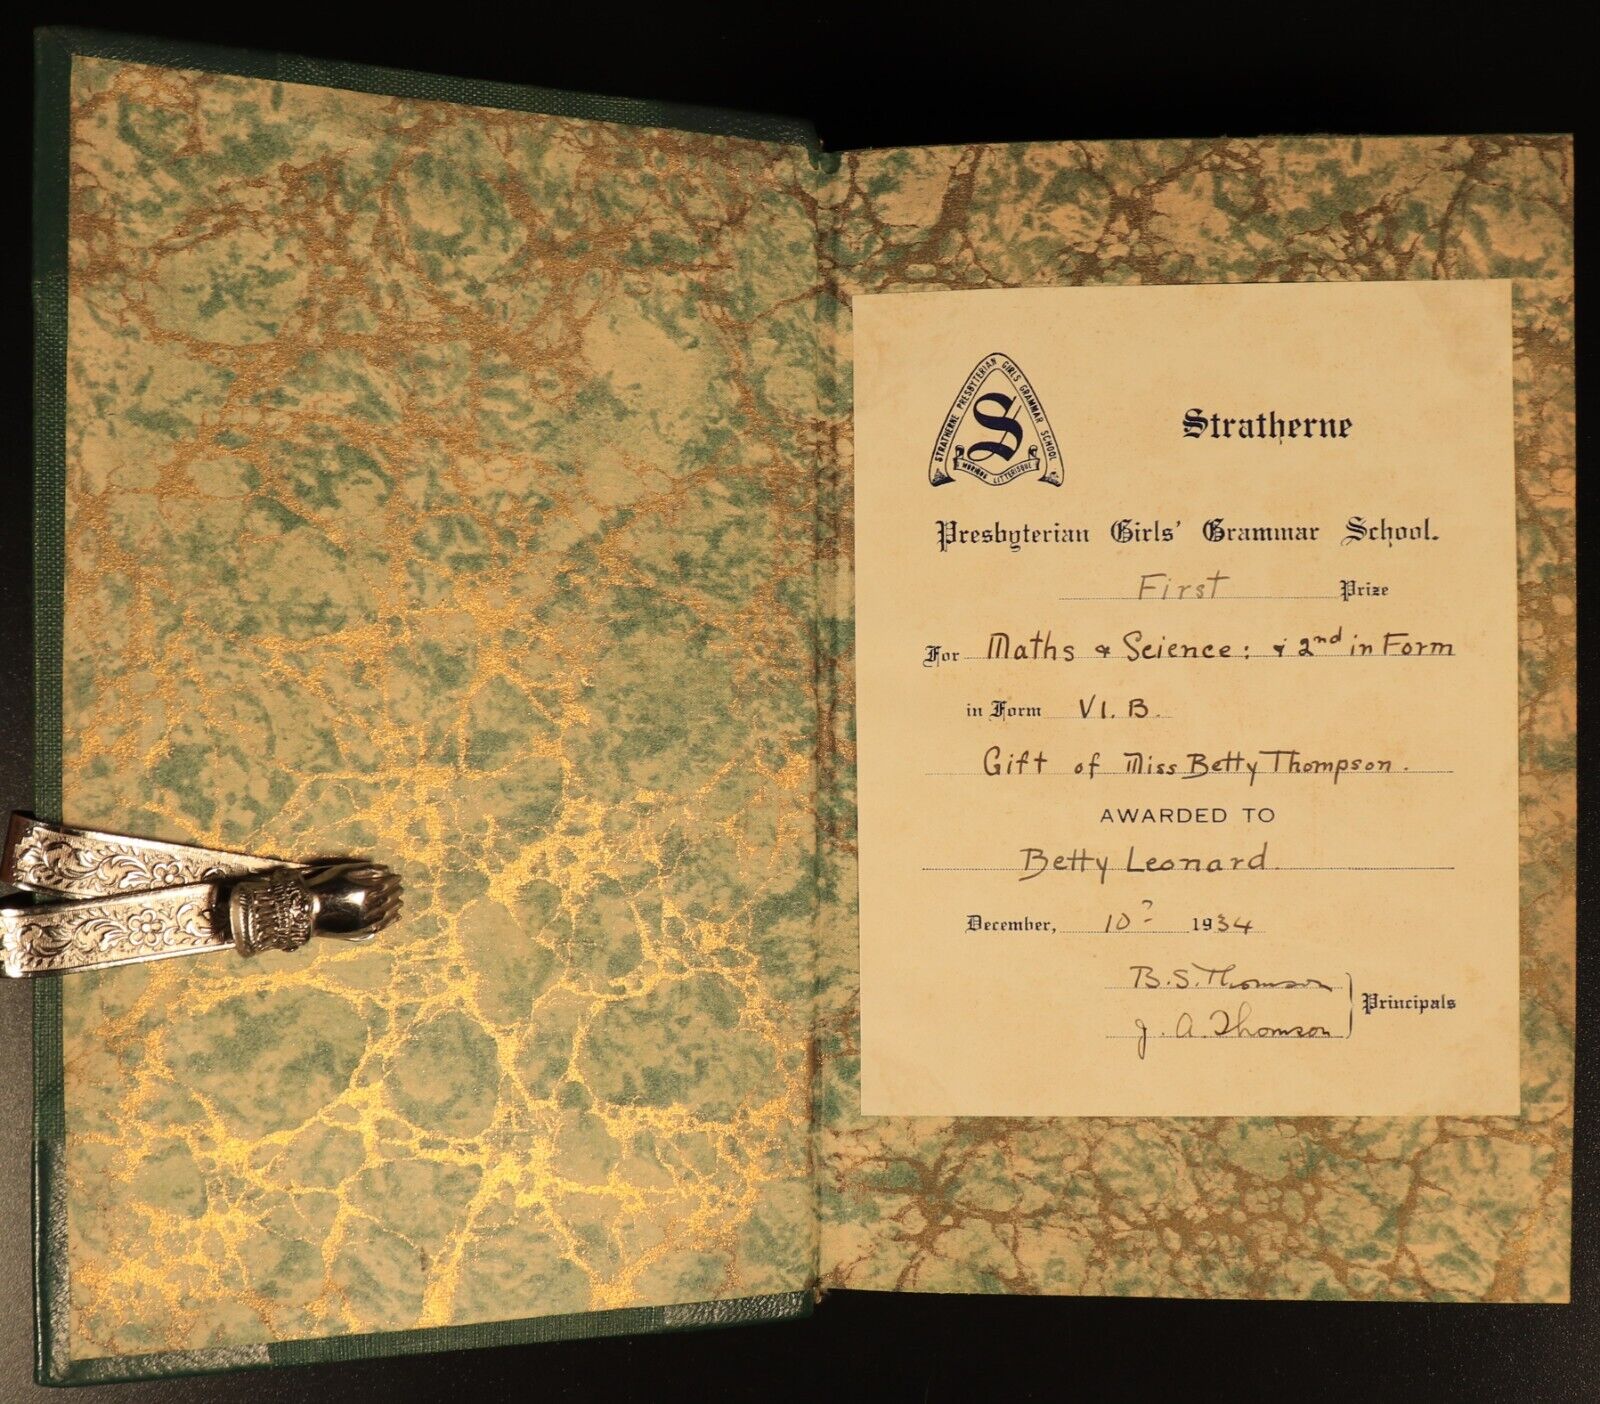 STRATHERNE PRESBYTERIAN GIRLS GRAMMAR SCHOOL
S
LITTERISQUE
Stratherne
Presbyterian Girls' Grammar School.
First Prize
For Maths & Science: & 2nd in Form
in Form VI. B.
Gift of Miss Betty Thompson.
AWARDED TO
Betty Leonard.
December, 10 1934
B. S. Thomson
J. A. Thomson
Principals